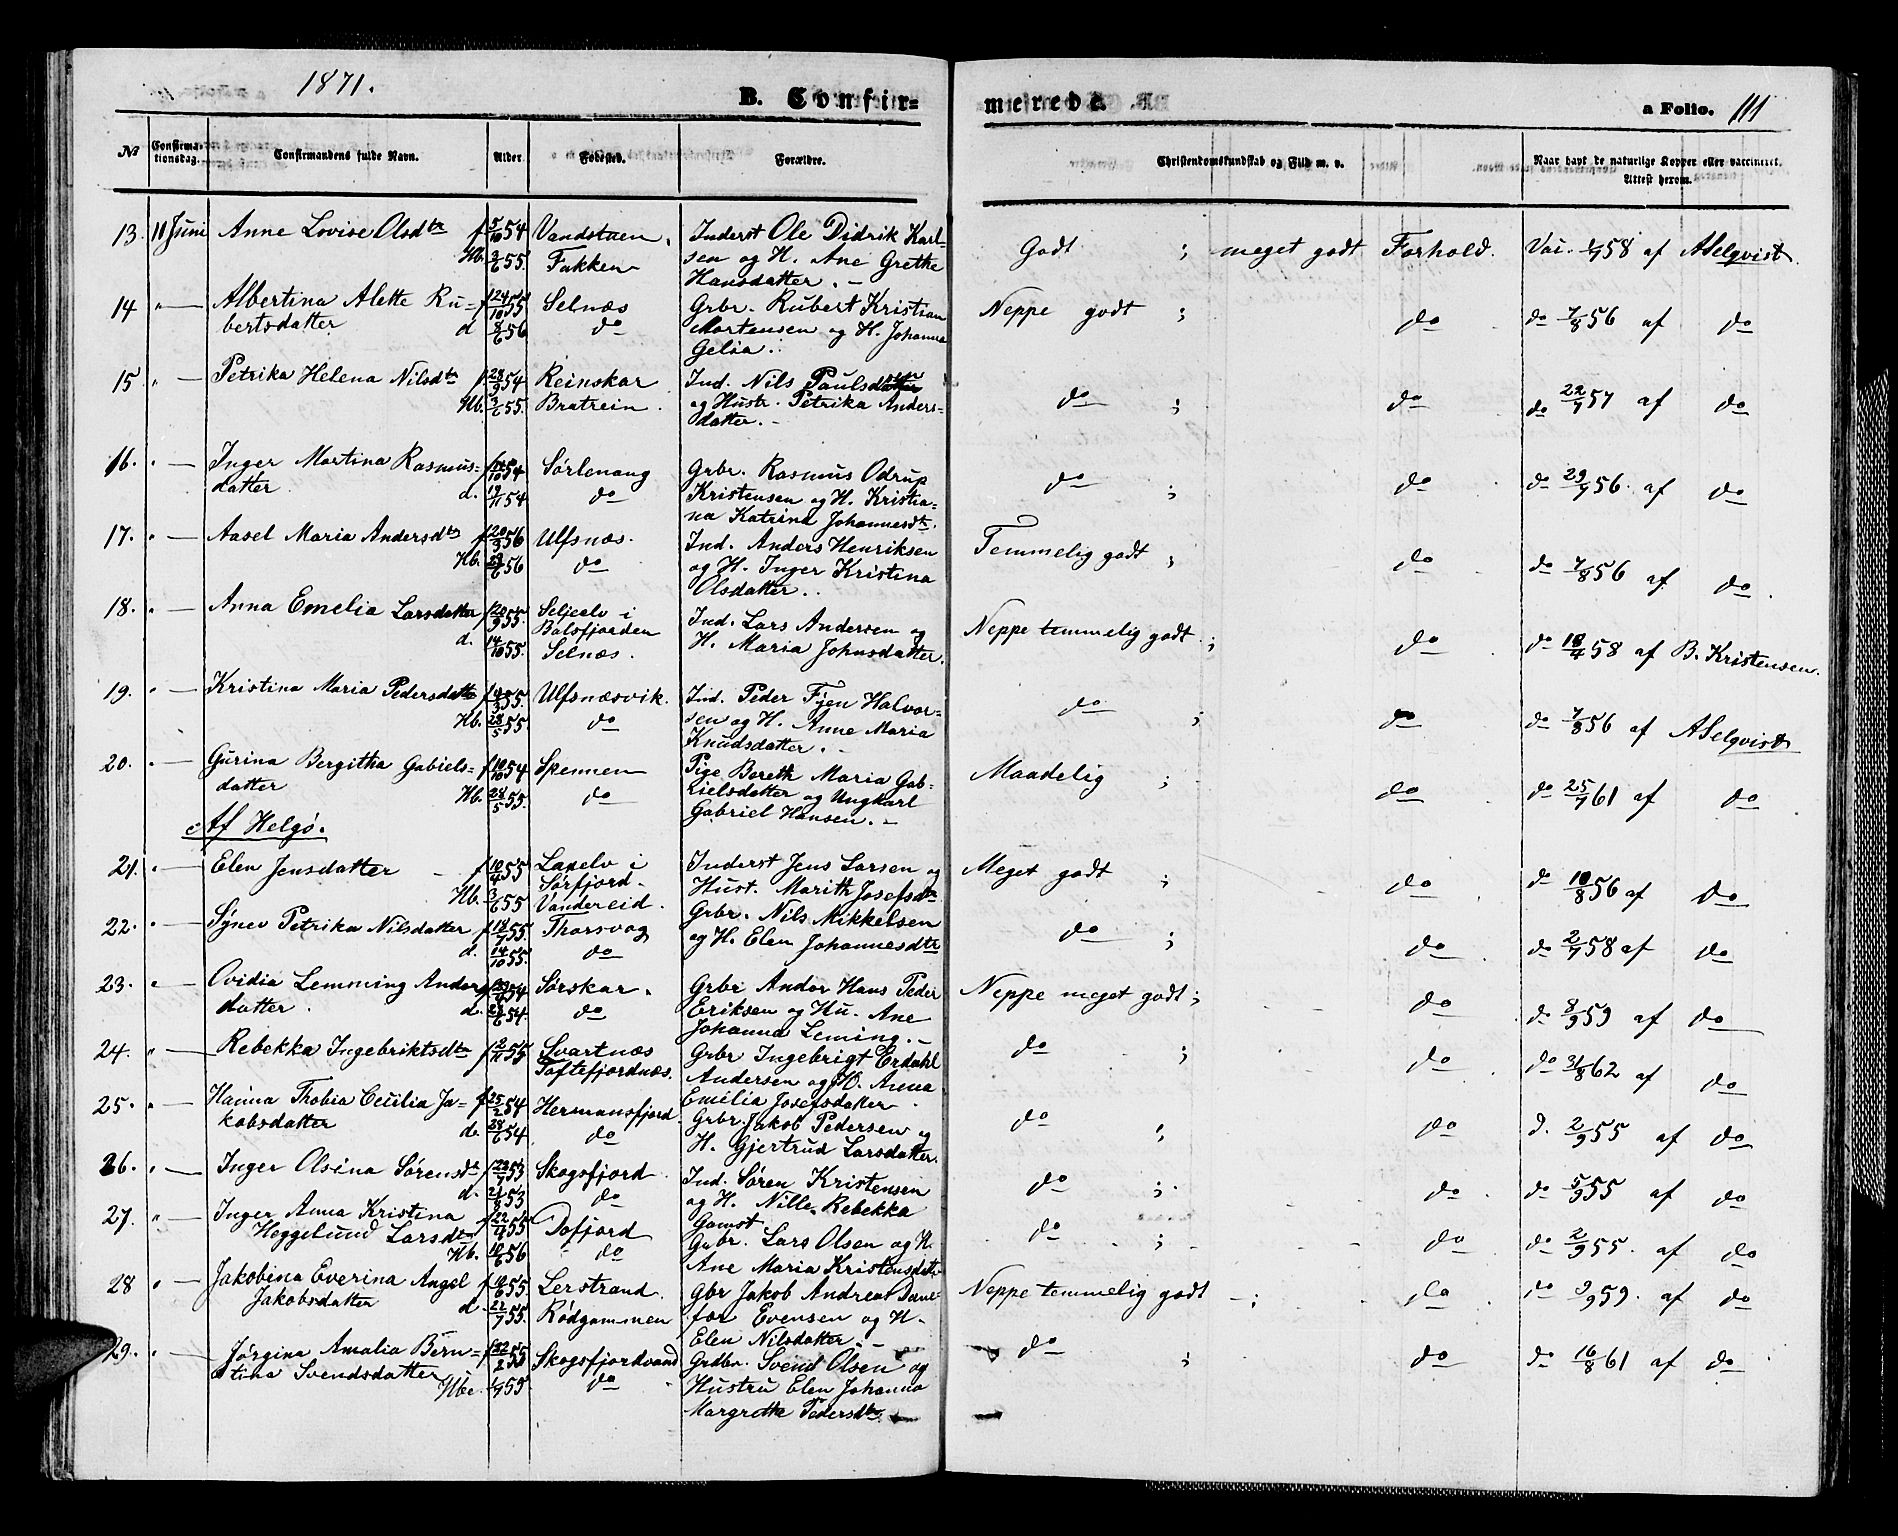 1871.
B. Confir=
merede.
a Folio. 111
No
Confirma-
tionsdag.
Confirmandens fulde Navn.
Alder.
Fødested.
Forældre.
Christendomskundskab og Flid m. v.
Naar havt de naturlige Kopper eller vaccineret.
Attest herom.
13. 11 Juni Anne Lovise Olsdtr f 5/10 54 Vandstuen. Inderst Ole Didrik Karl- Godt ; meget godt Forhold. Vac. 58 af A Selqvist.
Hb. 55. Fakken sen og H. Ane Grethe
Hansdatter.
14 " Albertina Alette Ru- f 24/10 55 Selnæs Grbr. Rubert Kristian Neppe godt ; do do 7/8 56 af do
bertsdatter d 8/6 56 do Mortensen og H. Johanna
Geløa.
15 " Petrika Helena Nilsdtr f 28/9 54 Reinskar Ind. Nils Paulsdatter do ; do do 22/7 57 af do
Hb. 3/6 55. Bratrein. og Hustr. Petrika Anders-
datter.
16. " Inger Martina Rasmus- f 54 Sørlenang Grbr. Rasmus Odrup do ; do do 29/7 56. af do
datter d. 19/11 54 do Kristensen og H. Kristia-
na Katrina Johannesdtr.
17. " Aasel Maria Andersdtr f 20/3 56 Ulfsnæs. Ind. Anders Henriksen Temmelig godt ; do do 7/8 56 af do
Hb. 56 do og H. Inger Kristina
Olsdatter.
18. " Anna Emelia Larsdatter f 20/9 55. Seljeelv i Ind. Lars Andersen og Neppe temmelig godt. ; do do 18/4 58 af B. Kristensen.
d. 14/10 55. Balsfjorden H. Maria Johnsdatter.
Selnæs.
19. " Kristina Maria Pedersdatter f 55. Ulfsnæsvik. Ind. Peder Fyen Halvor- do ; do do 7/8 56 af A Selqvist
Hb. 28/5 55. do sen og H. Anne Maria
Knudsdatter.
20. " Gurina Bergitha Gabiels- f 10/10 54 Spennen Pige Bereth Maria Gab- Maadelig ; do do 25/7 61 af do
datter Hb. 28/5 55. do rielsdatter og Ungkarl
Gabriel Hansen.
Af Helgø.
21. " Elen Jensdatter f 10/4 55 Laxelv i Inderst Jens Larsen og Meget godt ; do do 10/8 56 af do
Hb. 3/6 55 Sørfjord. Hust. Marith Josefsdtr
Vandereid.
22. " Synev Petrika Nilsdatter f 18/7 55. Thorsvog Grbr. Nils Mikkelsen do ; do do 2/7 58 af do
d. 14/10 55. do og H. Elen Johannesdtr
23. " Ovidia Lemming Andors f 54 Sørskar. Grbr Andor Hans Peder Neppe meget godt ; do do 8/9 59 af do
datter. d. 54. do Eriksen og Hu. Ane
Johanna Leming.
24. " Rebekka Ingebriktsdtr f 2/11 55 Svartnæs Grbr Ingebrigt Erdahl do ; do do 3/8 62 af do
Toftefjordnæs. Andersen og H. Anna
Emilia Josefsdatter.
25. " Hanna Thobia Cecilia Ja- f 25/2 54 Hermansfjord Grbr. Jakob Pedersen og do ; do d. 2/9 55 af do
kobsdatter d. 28/6 54 do H. Gjertrud Larsdatter.
26. " Inger Olsina Sørensdtr f 53 Skogsfjord Ind. Søren Kristensen do ; do do 5/9 55 af do
d. 53 do og H. Nille Rebekka
Gamst
27. " Inger Anna Kristina f 55 Dofjord Grbr. Lars Olsen og H. do ; do do 2/9 55. af do
Heggelund Larsdtr Hb. 10/6 56 do Ane Maria Kristensdtr
28 " Jakobina Everina Angel f 55. Lerstrand. Gbr Jakob Andreas Dane- Neppe temmelig godt ; do do 3/9 59. af do
Jakobsdatter d. 22/7 55. Rødgammen for Evensen og H.
Elen Nilsdatter.
29. " Jørgina Amalia Bern- f 22/2 55 Skogsfjordvand Grdbr. Svend Olsen og do ; do do 16/8 61 af do
tina Svendsdatter Hbe. 1/9 55. do Hustru Elen Johanna
Margrethe Pedersdtr.